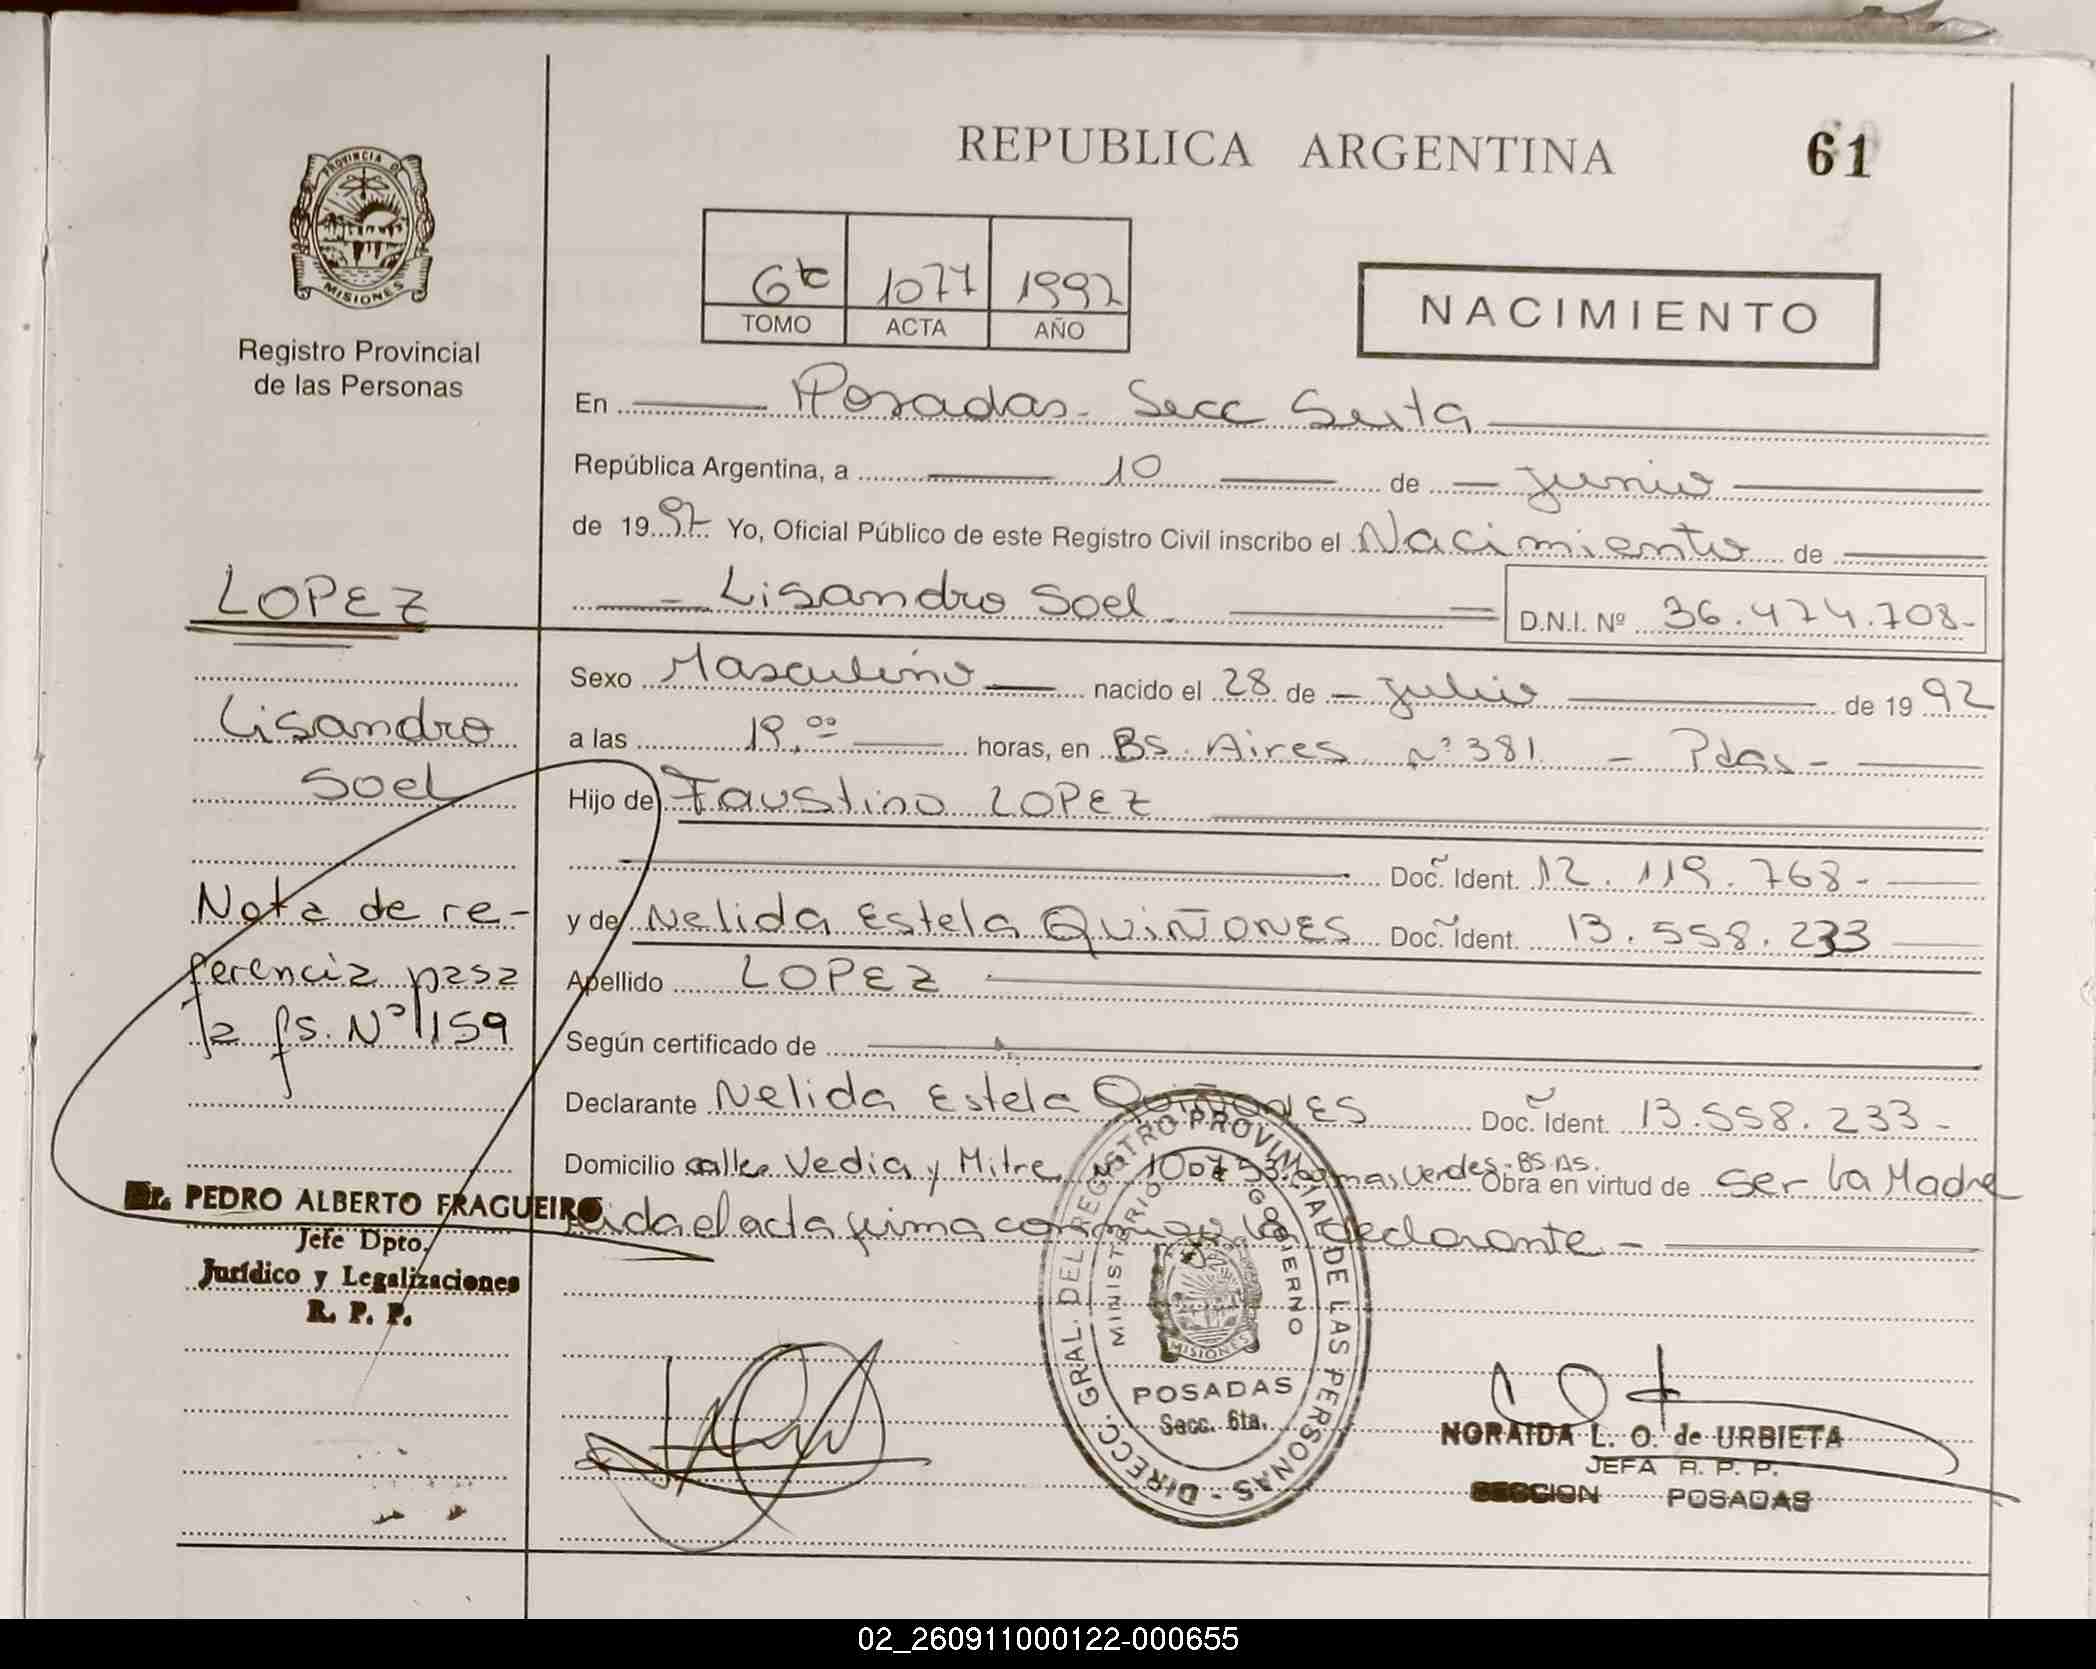 REPUBLICA ARGENTINA
61
PROVINCIA DE
MISIONES
Registro Provincial
de las Personas
6to 1077 1992
TOMO ACTA AÑO
NACIMIENTO
En Posadas - Secc Sexta
República Argentina, a 10 de Junio
de 19 97 Yo, Oficial Público de este Registro Civil inscribo el Nacimiento de
Lisandro Soel D.N.I. Nº 36.474.708-
Sexo Masculino nacido el 28 de Julio de 19 92
a las 19,00 horas, en Bs. Aires nº 381 - Pdas -
Hijo de Faustino LOPEZ
Doc. Ident. 12.119.768-
y de Nelida Estela QUIÑONES Doc. Ident. 13.558.233
Apellido LOPEZ
Según certificado de
Declarante Nelida Estela QUIÑONES Doc. Ident. 13.558.233-
Domicilio calle Vedia y Mitre Lomas Verdes. BS. AS. Obra en virtud de Ser La Madre
Leida el acta firma conmigo La declarante -
LOPEZ
Lisandro
Soel
Nota de re-
ferencia pasa
a fs. Nº 159
Dr. PEDRO ALBERTO FRAGUEIRO
Jefe Dpto.
Jurídico y Legalizaciones
R. P. P.
DIRECC. GRAL. DEL REGISTRO PROVINCIAL DE LAS PERSONAS -
MINISTERIO GOBIERNO
MISIONES
POSADAS
Secc. 6ta.
NORAIDA L. O. de URBIETA
JEFA R. P. P.
SECCION POSADAS
02_260911000122-000655